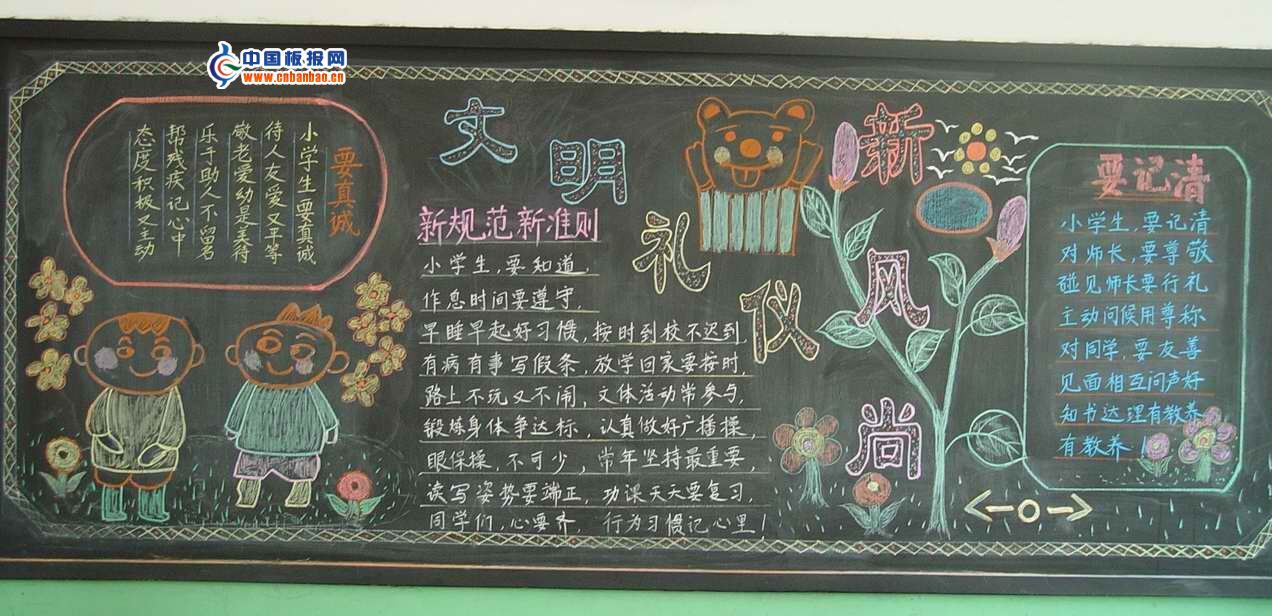 中国板报网
www.cnbanbao.cn
要真诚
小学生要真诚
待人友爱又平等
敬老爱幼是美待
乐于助人不留名
帮残疾记心中
态度积极又主动
文明礼仪
新风尚
新规范新准则
小学生,要知道
作息时间要遵守,
早睡早起好习惯,按时到校不迟到
有病有事写假条,放学回家要按时,
路上不玩又不闹,文体活动常参与,
锻炼身体争达标,认真做好广播操,
眼保操,不可少,常年坚持最重要,
读写姿势要端正,功课天天要复习,
同学们,心要齐,行为习惯记心里!
要记清
小学生,要记清
对师长,要尊敬
碰见师长要行礼
主动问候用尊称
对同学,要友善
见面相互问声好
知书达理有教养
有教养!